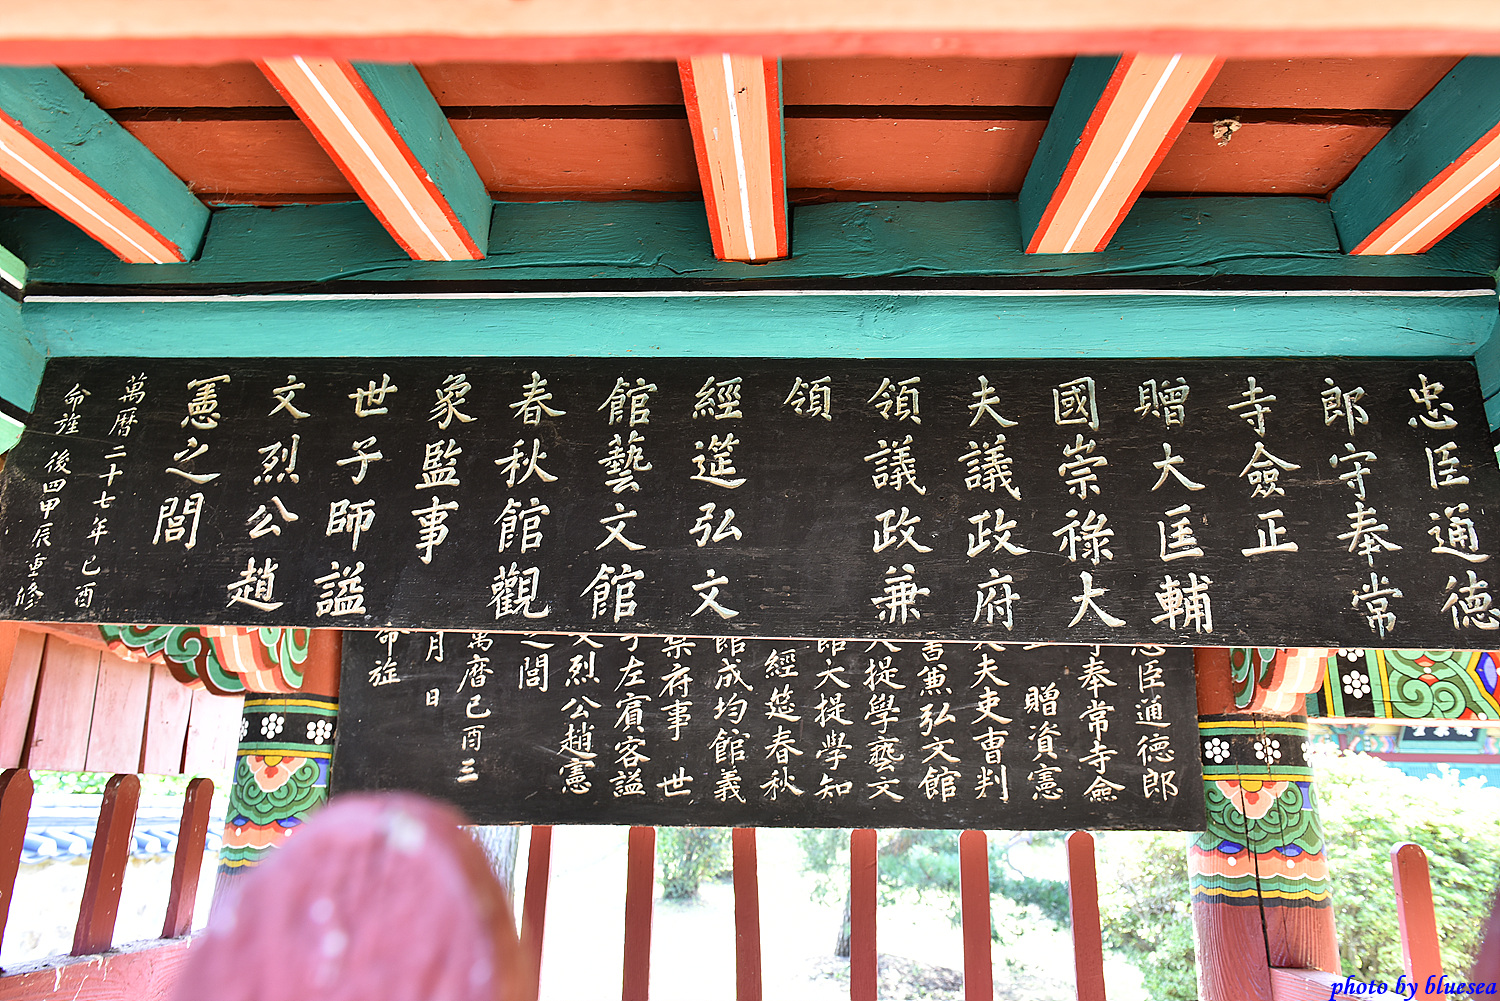 忠臣通德
郎守奉常
寺僉正
贈大匡輔
國崇祿大
夫議政府
領議政兼
領
經筵弘文
館藝文館
春秋館觀
象監事
世子師謚
文烈公趙
憲之閭
萬曆二十七年己酉
命旌 後四甲辰重修
忠臣通德郎
守奉常寺僉
贈資憲
大夫吏曹判
書兼弘文館
大提學藝文
館大提學知
經筵春秋
館成均館義
禁府事 世
子左賓客謚
文烈公趙憲
之閭
萬曆己酉三
月日
命旌
photo by bluesea